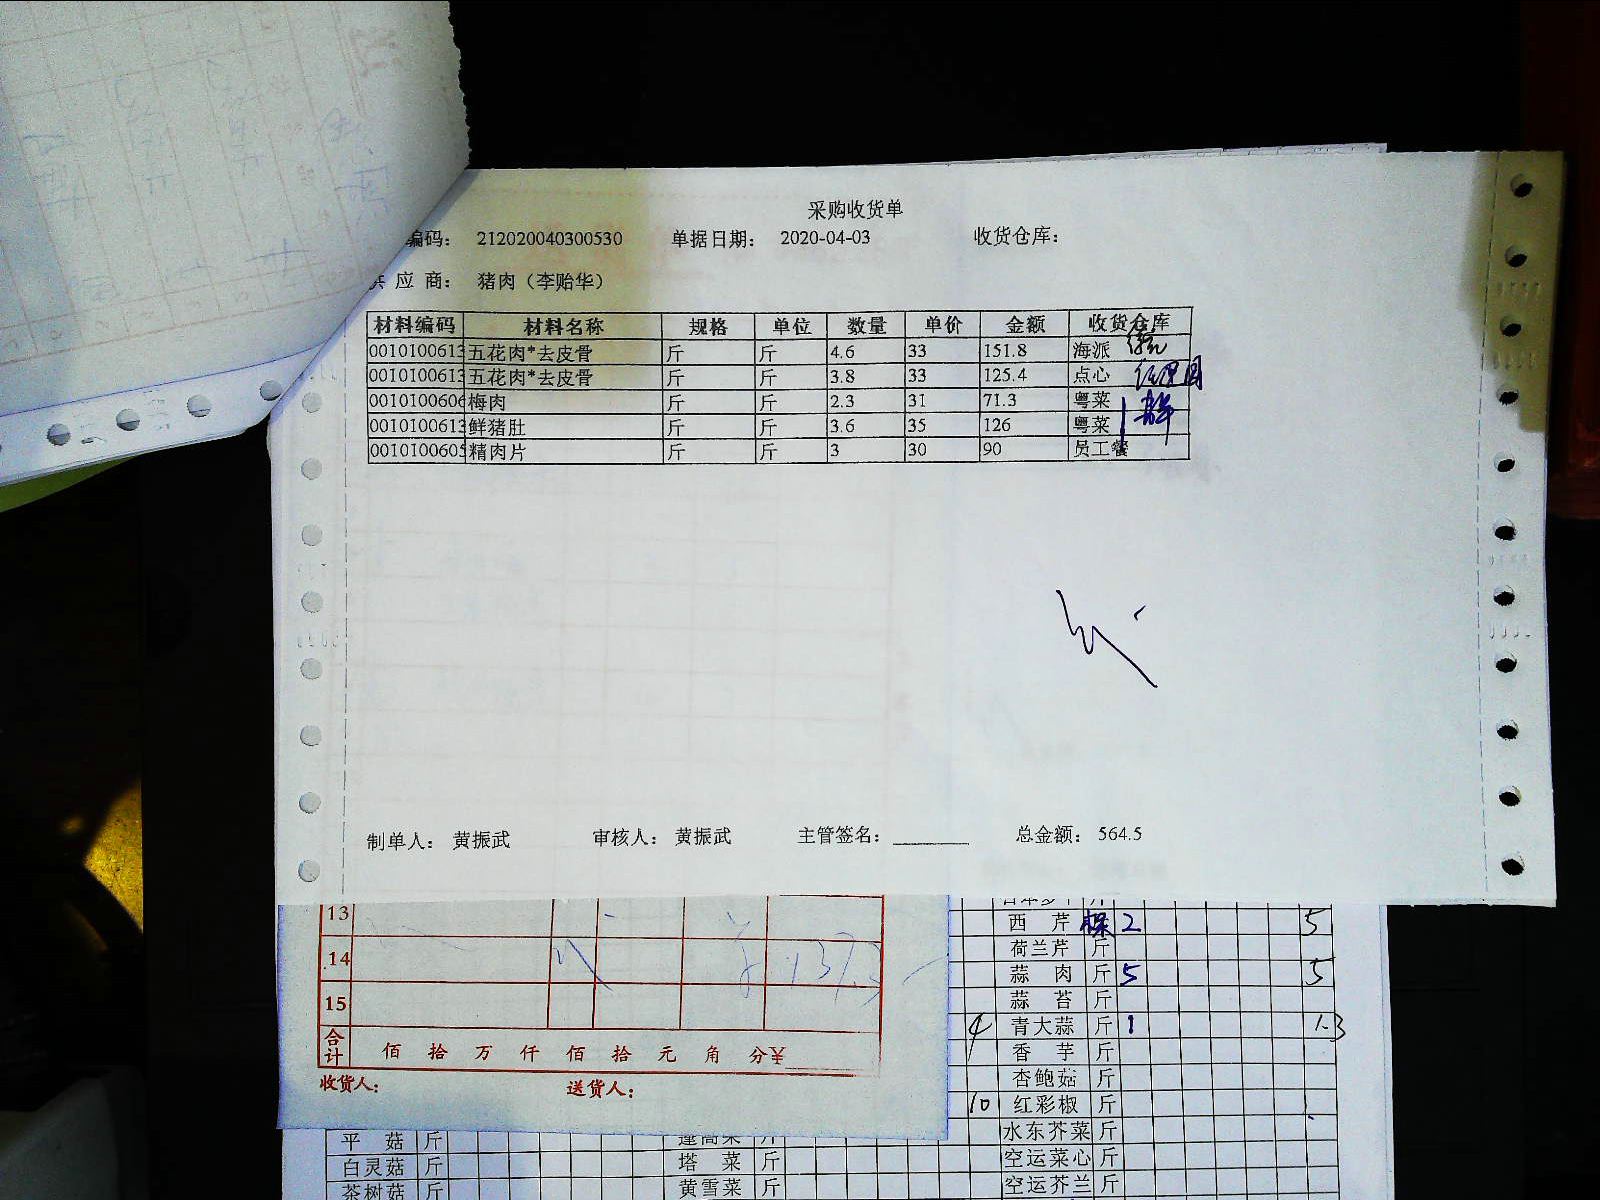 采购收货单
编码： 212020040300530 单据日期： 2020-04-03 收货仓库：
应 商： 猪肉（李贻华）
材料编码 材料名称 规格 单位 数量 单价 金额 收货仓库
0010100613 五花肉*去皮骨 斤 斤 4.6 33 151.8 海派
0010100613 五花肉*去皮骨 斤 斤 3.8 33 125.4 点心
0010100606 梅肉 斤 斤 2.3 31 71.3 粤菜
0010100613 鲜猪肚 斤 斤 3.6 35 126 粤菜
0010100605 精肉片 斤 斤 3 30 90 员工餐
制单人： 黄振武 审核人： 黄振武 主管签名： 总金额： 564.5
13
14
15
合计 佰 拾 万 仟 佰 拾 元 角 分¥
收货人： 送货人：
西 芹 棵 2 5
荷兰芹 斤
蒜 肉 斤 5 5
蒜 苔 斤
4 青大蒜 斤 1 1.3
香 芋 斤
杏鲍菇 斤
10 红彩椒 斤
水东芥菜 斤
平 菇 斤
白灵菇 斤 塔 菜 斤 空运菜心 斤
茶树菇 斤 黄雪菜 斤 空运芥兰 斤